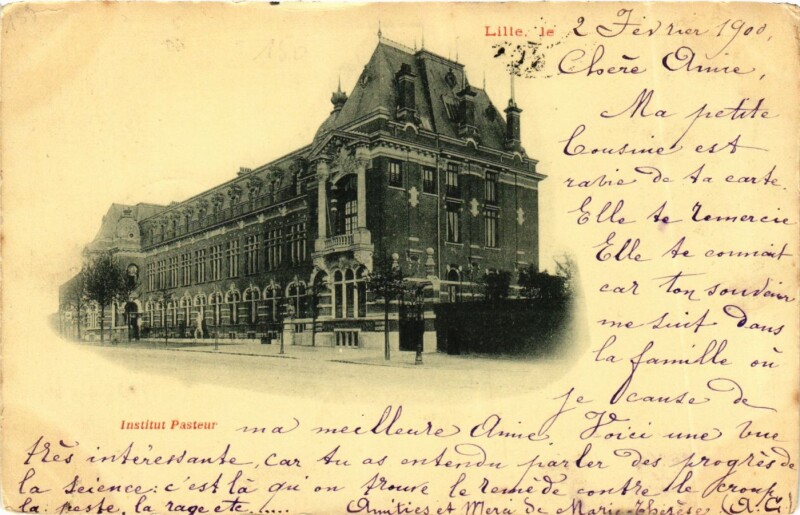 Lille, le 2 Février 1900,
Chère Amie,
Ma petite
Cousine est
ravie de ta carte.
Elle te remercie
Elle te connait
car ton souvenir
me suit dans
la famille où
je cause de
Institut Pasteur
ma meilleure Amie. Voici une vue
très intéressante, car tu as entendu parler des progrès de
la science: c'est là qu'on trouve le remède contre le croup
la peste, la rage etc.....
Amitiés et Merci de Marie-Thérèse (A.C.)